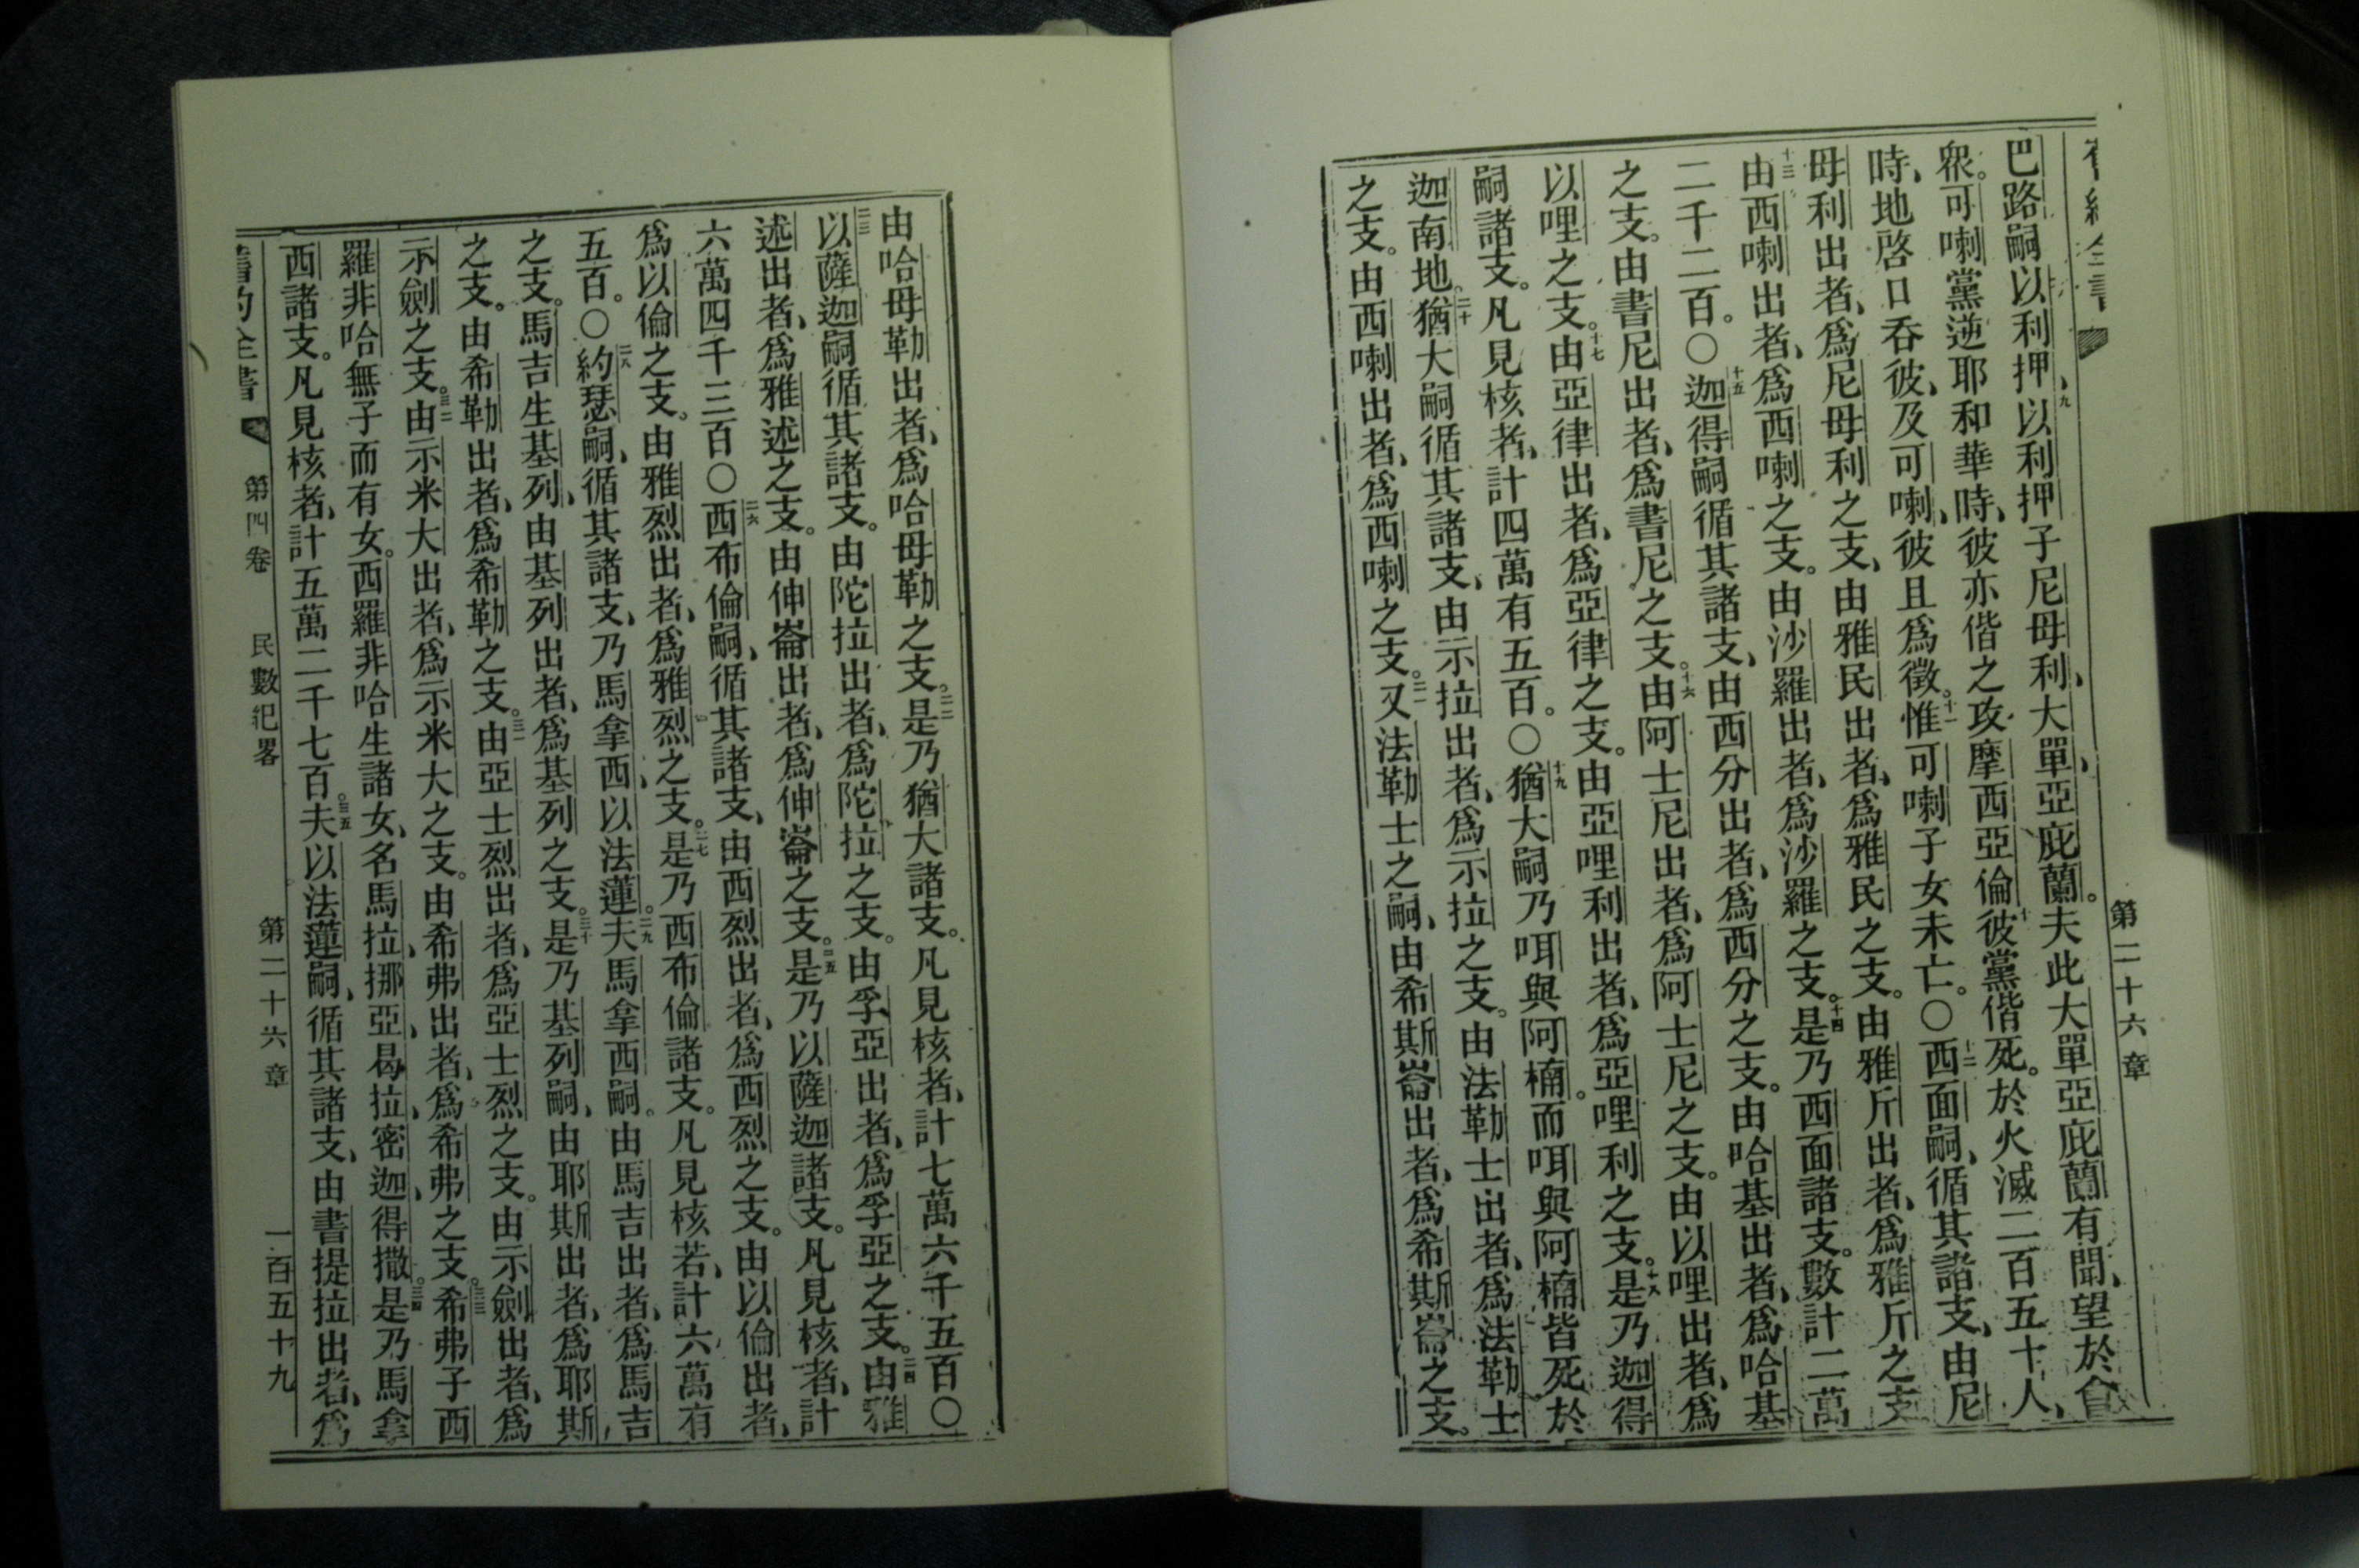 舊約全書
第二十六章
巴路嗣以利押、九以利押子尼母利、大單、亞庇蘭。夫此大單亞庇蘭有聞、望於會
衆。可喇黨逆耶和華時、彼亦偕之攻摩西亞倫、十彼黨偕死。於火滅二百五十人、
時、地啓口吞彼、及可喇、彼且爲徵。十一惟可喇子女未亡。〇十二西面嗣、循其諸支、由尼
母利出者、爲尼母利之支、由雅民出者、爲雅民之支。由雅斤出者、爲雅斤之支
十三由西喇出者、爲西喇之支。由沙羅出者、爲沙羅之支。十四是乃西面諸支。數計二萬
二千二百。〇十五迦得嗣循其諸支、由西分出者、爲西分之支。由哈基出者、爲哈基
之支。由書尼出者、爲書尼之支。十六由阿士尼出者、爲阿士尼之支。由以哩出者、爲
以哩之支。十七由亞律出者、爲亞律之支。由亞哩利出者、爲亞哩利之支。十八是乃迦得
嗣諸支。凡見核者、計四萬有五百。〇十九猶大嗣乃咡與阿楠。而咡與阿楠皆死於
迦南地。二十猶大嗣循其諸支、由示拉出者、爲示拉之支。由法勒士出者、爲法勒士
之支。由西喇出者、爲西喇之支。二一又法勒士之嗣、由希斯崙出者、爲希斯崙之支。
由哈母勒出者、爲哈母勒之支。二二是乃猶大諸支。凡見核者、計七萬六千五百〇
二三以薩迦嗣循其諸支。由陀拉出者、爲陀拉之支。由孚亞出者、爲孚亞之支。二四由雅
述出者、爲雅述之支。由伸崙出者、爲伸崙之支。二五是乃以薩迦諸支。凡見核者、計
六萬四千三百〇二六西布倫嗣、循其諸支、由西烈出者、爲西烈之支。由以倫出者、
爲以倫之支。由雅烈出者、爲雅烈之支。二七是乃西布倫諸支。凡見核若、計六萬有
五百。〇二八約瑟嗣、循其諸支、乃馬拿西、以法蓮。二九夫馬拿西嗣。由馬吉出者、爲馬吉
之支。馬吉生基列、由基列出者、爲基列之支。三十是乃基列嗣、由耶斯出者、爲耶斯
之支。由希勒出者、爲希勒之支。三一由亞士烈出者、爲亞士烈之支。由示劍出者、爲
示劍之支。三二由示米大出者、爲示米大之支。由希弗出者、爲希弗之支。三三希弗子西
羅非哈無子而有女。西羅非哈生諸女、名馬拉、挪亞、曷拉、密迦、得撒。三四是乃馬拿
西諸支。凡見核者、計五萬二千七百。三五夫以法蓮嗣、循其諸支、由書提拉出者、爲
舊約全書 第四卷 民數紀畧 第二十六章 一百五十九